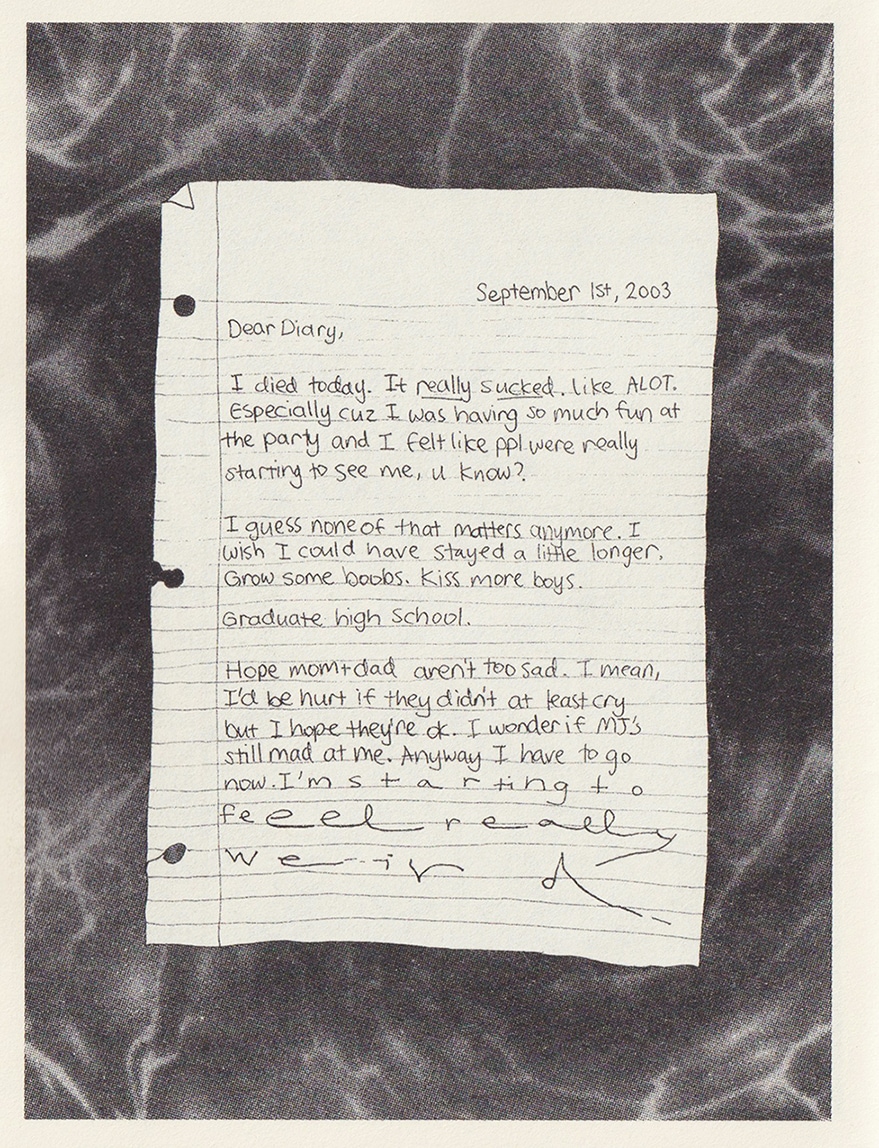 September 1st, 2003
Dear Diary,
I died today. It really sucked. like ALOT.
Especially cuz I was having so much fun at
the party and I felt like ppl were really
starting to see me, u know?
I guess none of that matters anymore. I
wish I could have stayed a little longer.
Grow some boobs. Kiss more boys.
Graduate high School.
Hope mom+dad aren't too sad. I mean,
I'd be hurt if they didn't at least cry
but I hope they're ok. I wonder if MJ's
still mad at me. Anyway I have to go
now. I'm starting to
feeel really
wei